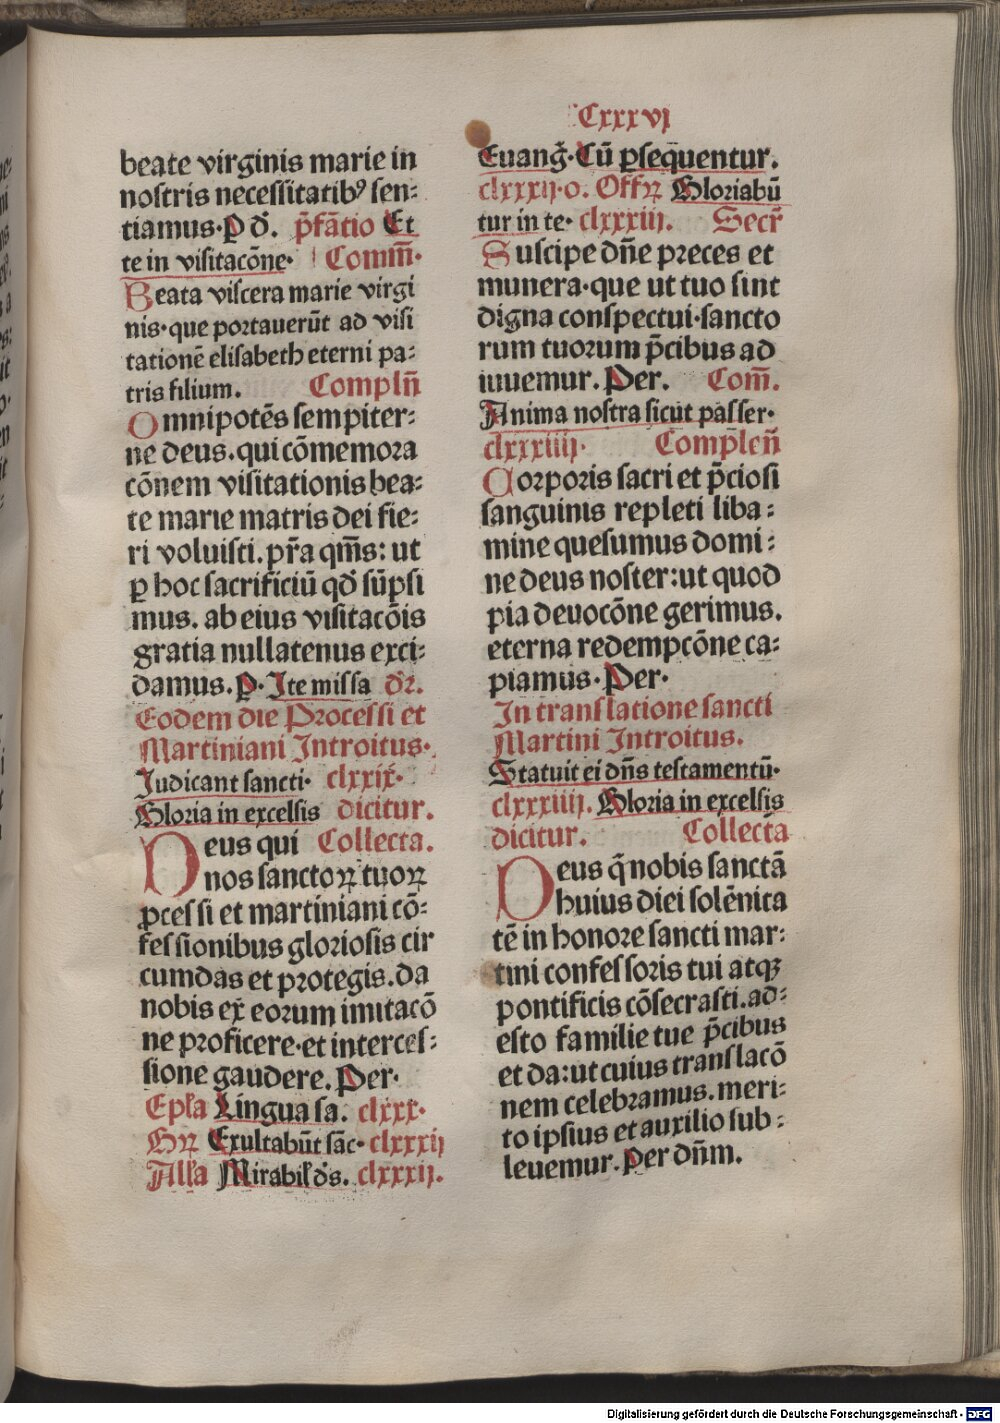 Cxxxvj
beate virginis marie in
nostris necessitatibꝰ sen⸗
tiamus. P d̓. p̄fātio Et
te in visitacōne. Comm̄.
Beata viscera marie virgi
nis. que portauerūt ad visi
tationē elisabeth eterni pa⸗
tris filium. Complń
Omnipotēs sempiter⸗
ne deus. qui cōmemora
cōnem visitationis bea⸗
te marie matris dei fie⸗
ri voluisti. pr̄a qm̄s: ut
ꝑ hoc sacrificiū qd̓ sūpsi
mus. ab eius visitacōis
gratia nullatenus exci⸗
damus. ꝑ. Ite missa dr̄.
Eodem die Processi et
Martiniani Introitus.
Judicant sancti. clxxix.
Gloria in excelsis dicitur.
Deus qui Collecta.
nos sanctoꝝ tuoꝝ
ꝓcessi et martiniani cō⸗
fessionibus gloriosis cir
cumdas et protegis. da
nobis ex̄ eorum imitacō
ne proficere. et interces⸗
sione gaudere. Per.
Epl̄a Lingua sa. clxxx.
Gꝝ Exultabūt sāc. clxxxij
All̓a Mirabil̓ d̓s. clxxxij.
Euang̓. Cū ꝑsequentur.
clxxxij. o. Offꝝ Gloriabū
tur in te. clxxxiij. Secr̄
Suscipe dn̄e preces et
munera. que ut tuo sint
digna conspectui. sancto
rum tuorum p̄cibus ad
iuuemur. Per. Com̄.
Anima nostra sicut passer.
clxxxiiij. Complen̄
Corporis sacri et p̄ciosi
sanguinis repleti liba⸗
mine quesumus domi⸗
ne deus noster: ut quod
pia deuocōne gerimus.
eterna redempcōne ca⸗
piamus. Per.
In translatione sancti
Martini Introitus.
Statuit ei dn̄s testamentū.
clxxxiiij. Gloria in excelsis
dicitur. Collecta
Deus q̄ nobis sanctā
huius diei solēnita
tē in honore sancti mar⸗
tini confessoris tui atqꝫ
pontificis cōsecrasti. ad⸗
esto familie tue p̄cibus
et da: ut cuius translacō
nem celebramus. meri⸗
to ipsius et auxilio sub⸗
leuemur. Per dn̄m.
Digitalisierung gefördert durch die Deutsche Forschungsgemeinschaft - DFG